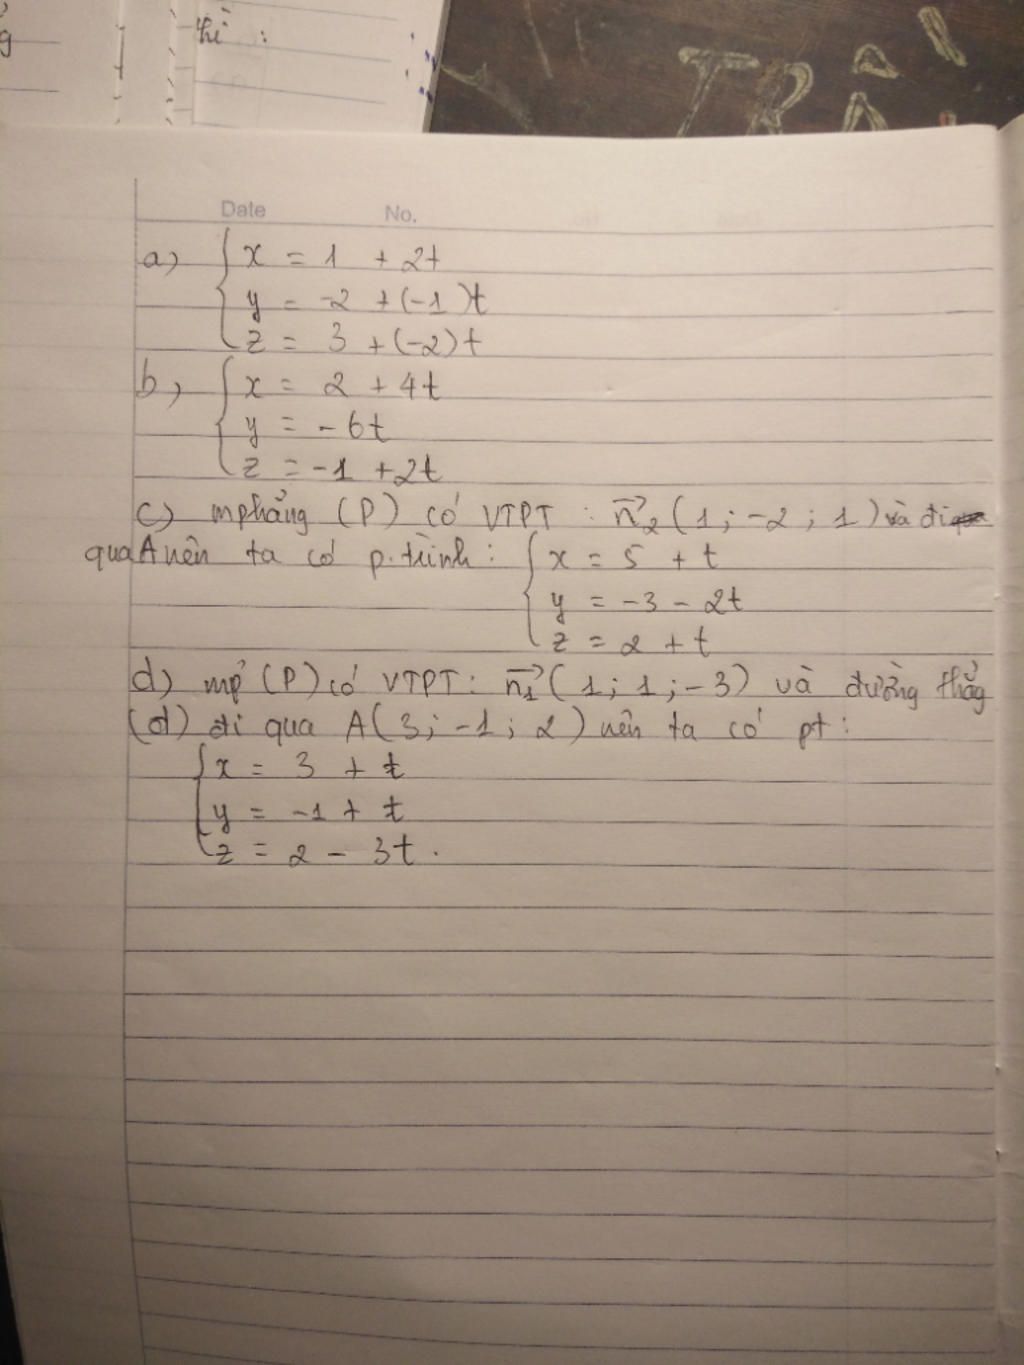 g
thì :
TRÀ
Date No.
a) { x = 1 + 2t
y = -2 + (-1)t
z = 3 + (-2)t
b) { x = 2 + 4t
y = - 6t
z = -1 + 2t
c) mphẳng (P) có VTPT : n₂→ (1 ; -2 ; 1) và đi
qua A nên ta có p.trình : { x = 5 + t
y = -3 - 2t
z = 2 + t
d) mp (P) có VTPT : n₁→ (1 ; 1 ; -3) và đường thẳg
(d) đi qua A(3 ; -1 ; 2) nên ta có pt :
{ x = 3 + t
y = -1 + t
z = 2 - 3t .